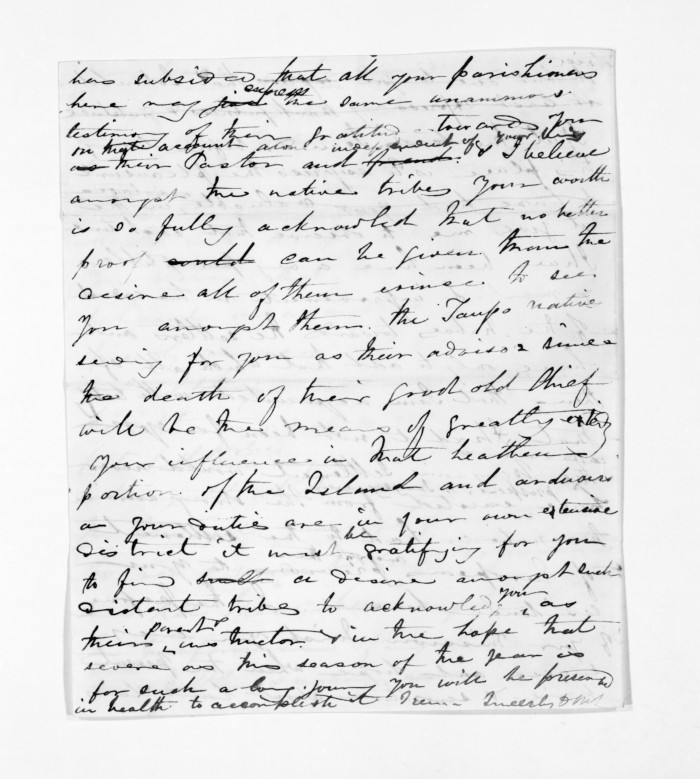 has subsided that all your parishioners
here may express the same unanimous
testimony of their gratitude towards you
on that account alone independent of your being
as their Pastor and friend. & I believe
amongst the native tribes your worth
is so fully acknowledged that no better
proof could can be given than the
desire all of them evince to see
you amongst them. the Taupo native
sending for you as their advisor since
the death of their good old Chief
will be the means of greatly
your influence in that heathen
portion of the Island and arduous
as your duties are in your own extensive
district it must be gratifying for you
to find such a desire amongst such
distant tribes to acknowledge you as
their parent & instructor. & in the hope that
severe as this season of the year is
for such a long journey you will be preserved
in health to accomplish it I remain Sincerely